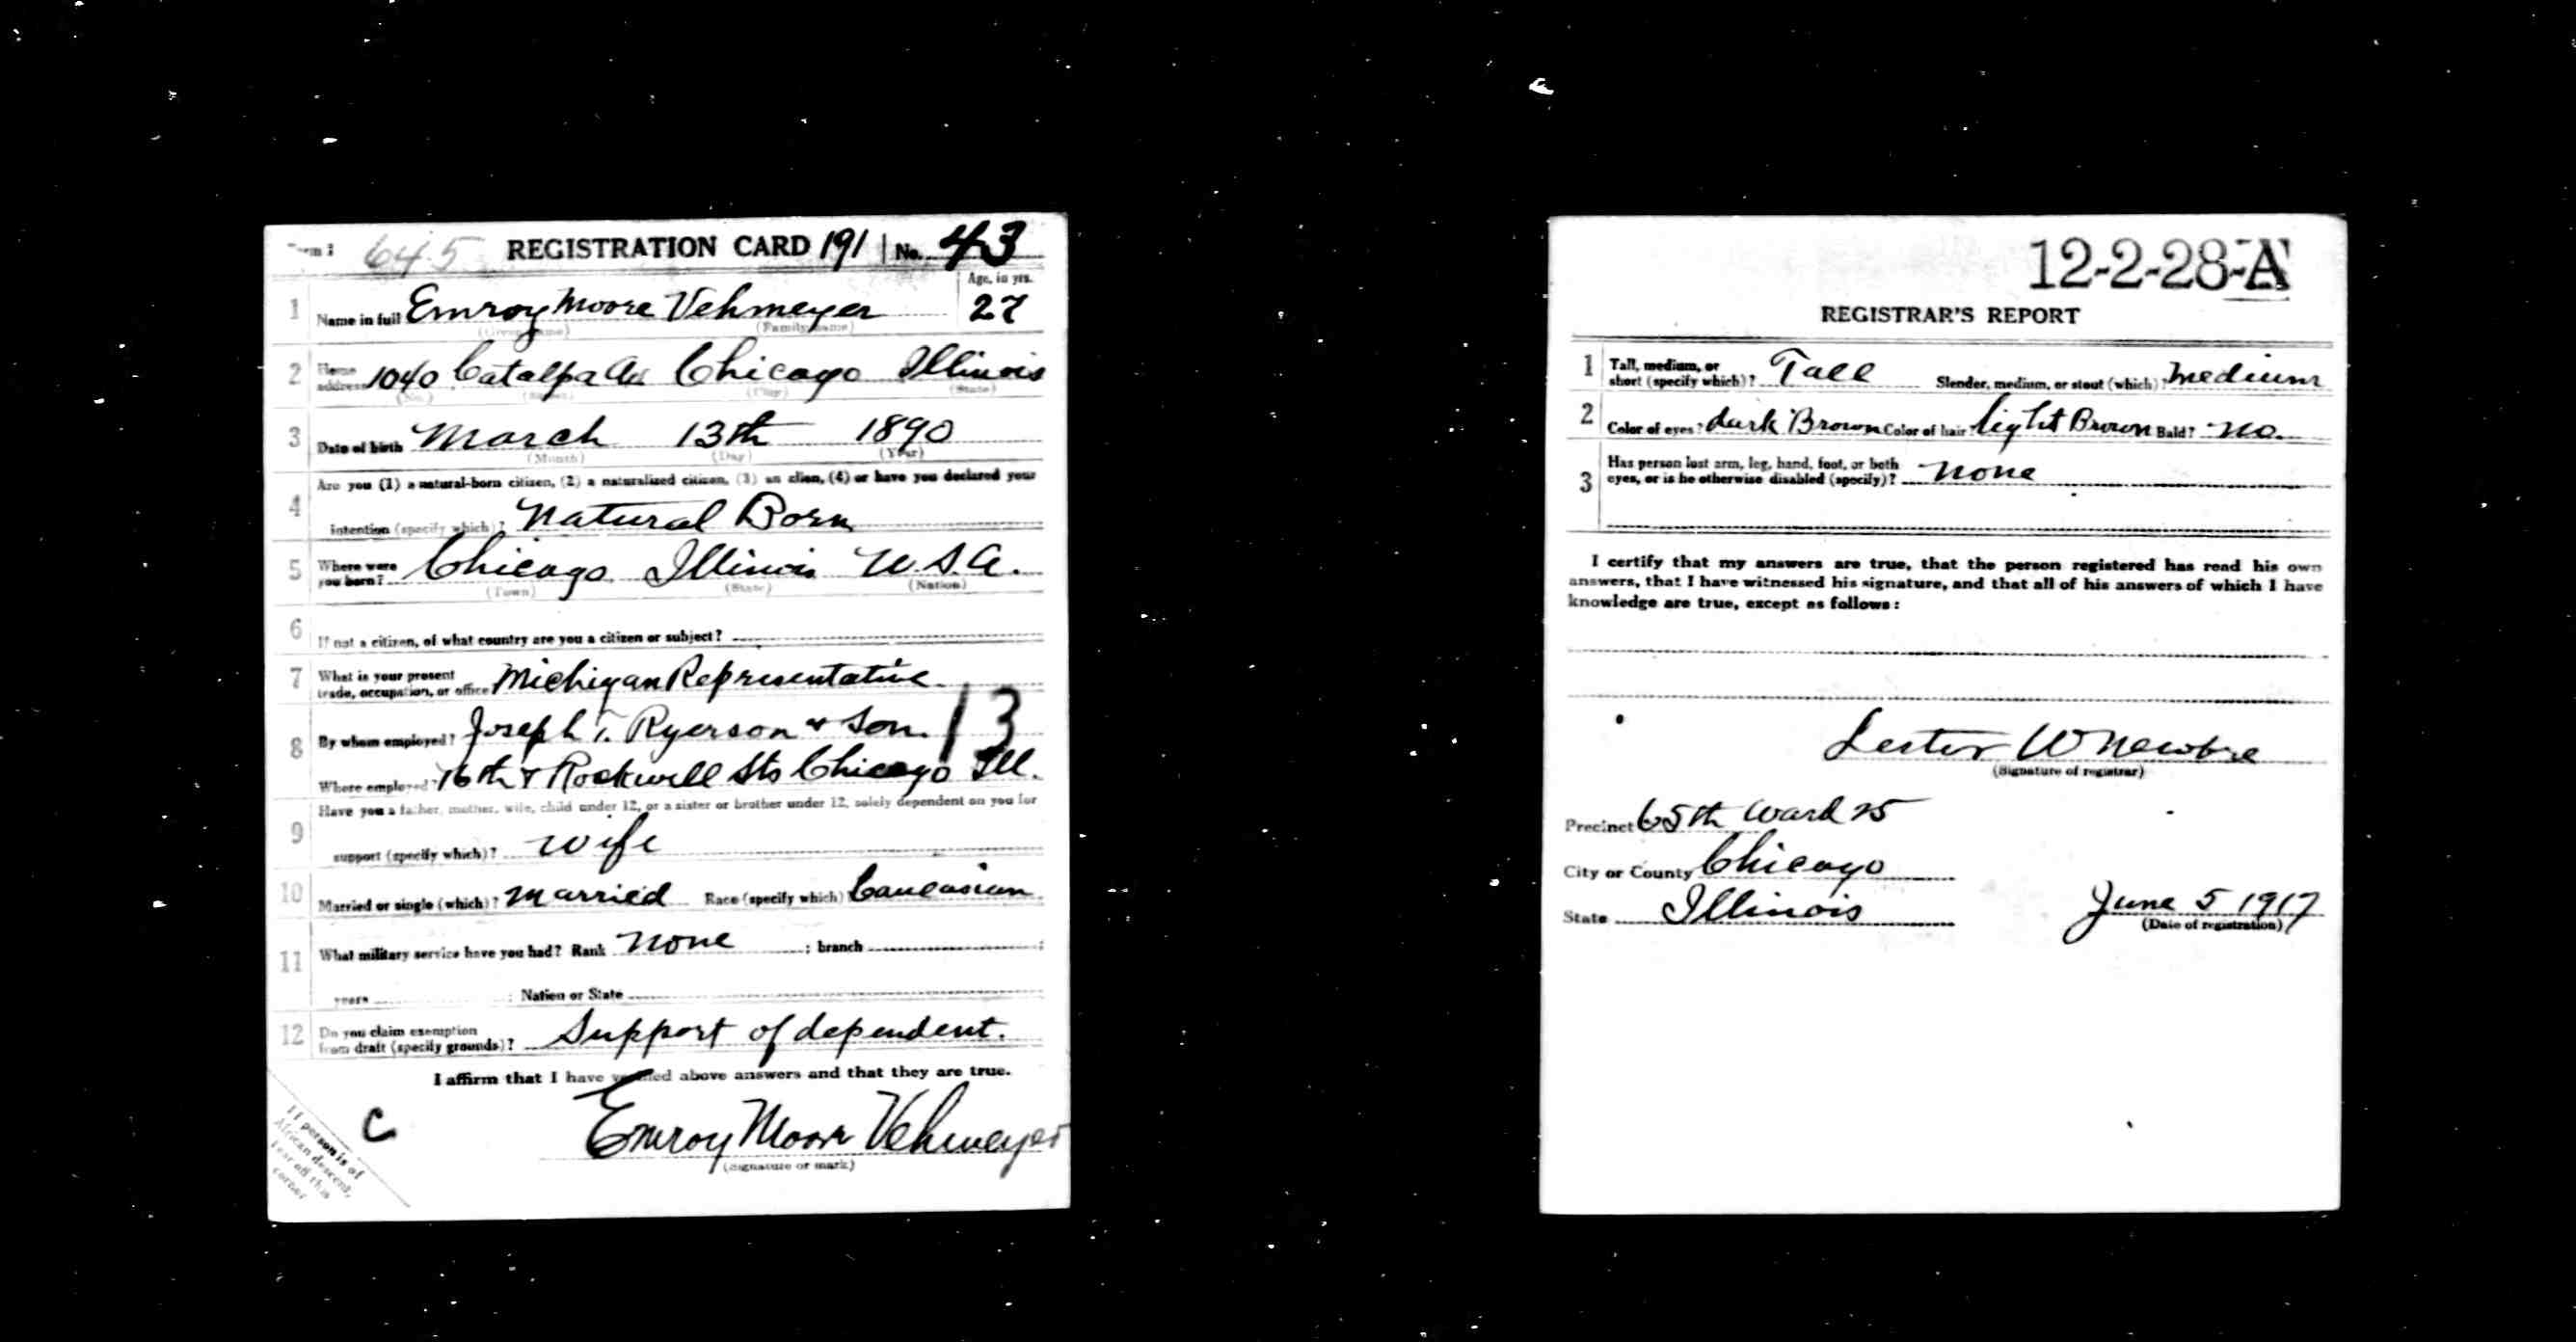 645 REGISTRATION CARD 191 No. 43
Age, in yrs.
1 Name in full Emroy Moore Vehmeyer 27
(Given name) (Family name)
2 Home address 1040 Catalpa Av Chicago Illinois
(No.) (Street) (City) (State)
3 Date of birth March 13th 1890
(Month) (Day) (Year)
Are you (1) a natural-born citizen, (2) a naturalized citizen, (3) an alien, (4) or have you declared your
4 intention (specify which)? Natural Born
5 Where were you born? Chicago Illinois U.S.A.
(Town) (State) (Nation)
6 If not a citizen, of what country are you a citizen or subject?
7 What is your present trade, occupation, or office Michigan Representative
8 By whom employed? Joseph T. Ryerson & Son. 13
Where employed? 16th & Rockwell Sts Chicago Ill.
Have you a father, mother, wife, child under 12, or a sister or brother under 12, solely dependent on you for
9 support (specify which)? wife
10 Married or single (which)? Married Race (specify which) Caucasian
11 What military service have you had? Rank None ; branch ;
years ; Nation or State
12 Do you claim exemption from draft (specify grounds)? Support of dependent.
I affirm that I have verified above answers and that they are true.
C Emroy Moore Vehmeyer
(Signature or mark)
If person is of
African descent,
tear off this
corner
12-2-28-A
REGISTRAR'S REPORT
1 Tall, medium, or short (specify which)? Tall Slender, medium, or stout (which)? Medium
2 Color of eyes? dark Brown Color of hair? light Brown Bald? No.
3 Has person lost arm, leg, hand, foot, or both eyes, or is he otherwise disabled (specify)? None
I certify that my answers are true, that the person registered has read his own
answers, that I have witnessed his signature, and that all of his answers of which I have
knowledge are true, except as follows:
Lester W
(Signature of registrar)
Precinct 65th Ward 25
City or County Chicago
State Illinois June 5 1917
(Date of registration)